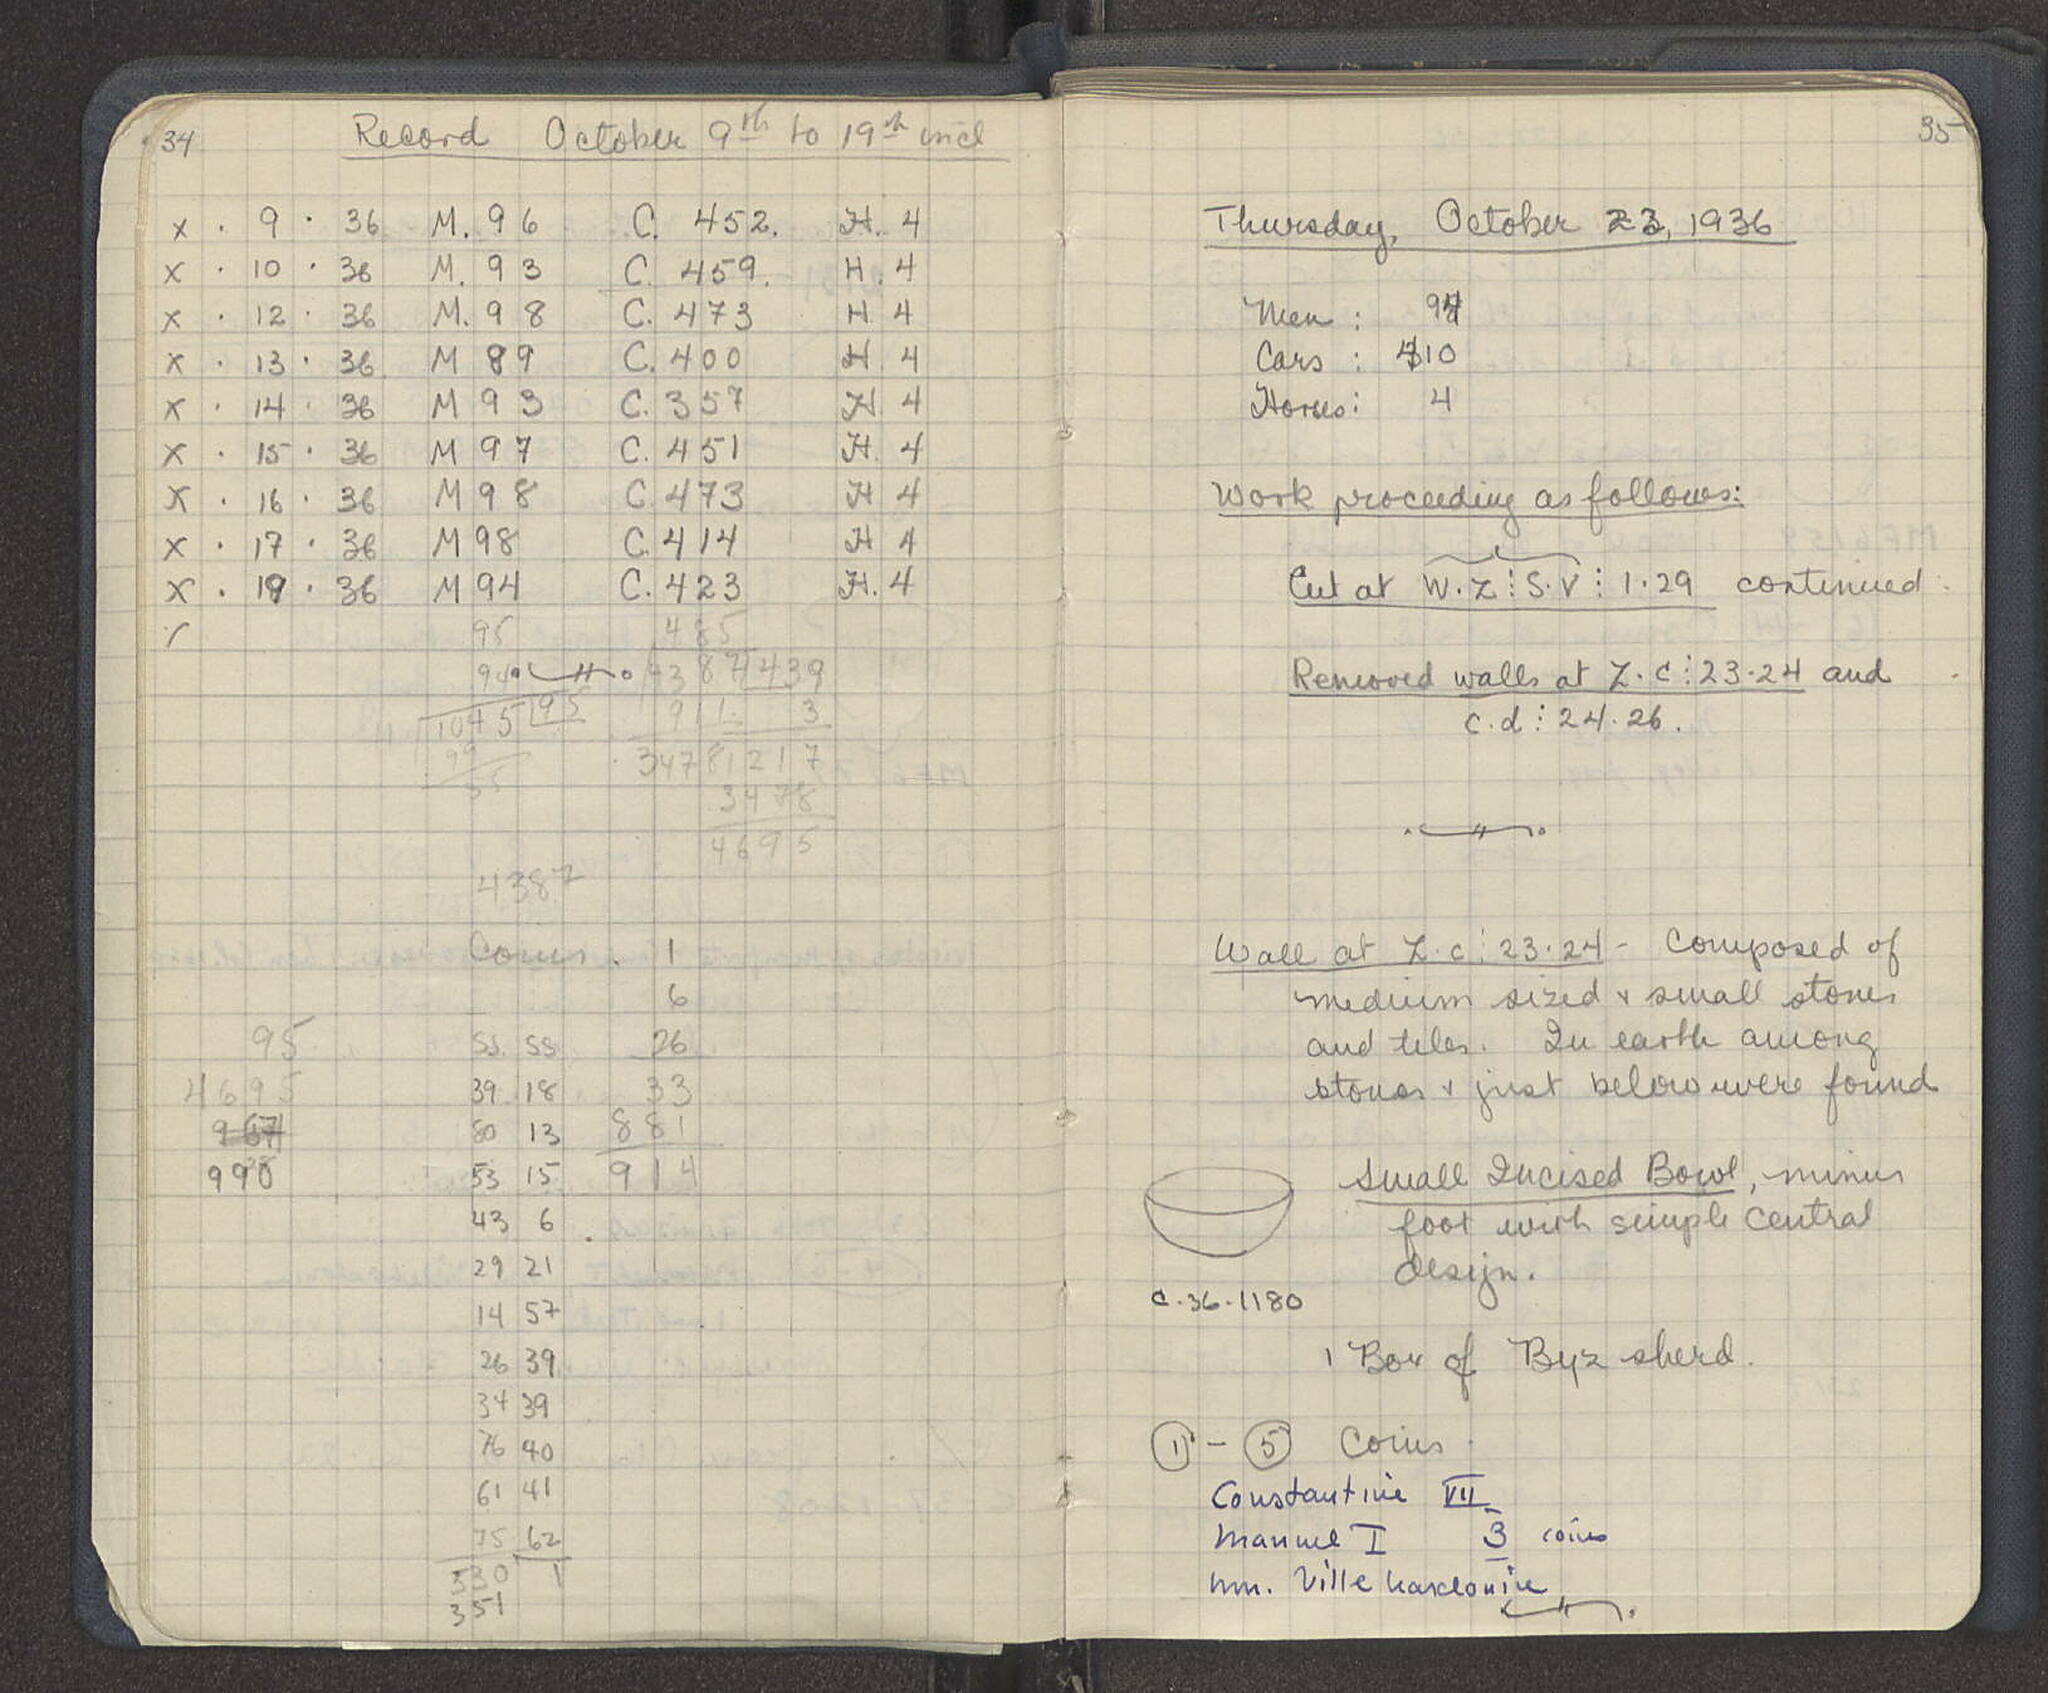 34
Record October 9th to 19th incl
x · 9 · 36 M. 96 C. 452. H. 4
x · 10 · 36 M. 93 C. 459. H. 4
x · 12 · 36 M. 98 C. 473 H. 4
x · 13 · 36 M 89 C. 400 H. 4
x · 14 · 36 M 93 C. 357 H. 4
x · 15 · 36 M 97 C. 451 H. 4
x · 16 · 36 M 98 C. 473 H 4
x · 17 · 36 M 98 C. 414 H 4
x · 19 · 36 M 94 C. 423 H. 4
95 485
94 4387 439
1045 95 911 3
99 3478 1217
55 3478
4695
4387
Coins. 1
6
95 SS. SS 26
4695 39 18 33
967 80 13 881
990 53 15 914
43 6
29 21
14 57
26 39
34 39
76 40
61 41
75 62
530 1
351
35
Thursday, October 23, 1936
Men : 94
Cars : 410
Horses: 4
Work proceeding as follows:
Cut at W.Z⋮S.V⋮1.29 continued.
Removed walls at Z.c⋮23.24 and
c.d⋮24.26.
Wall at Z.c⋮23.24 - Composed of
medium sized & small stones
and tiles. In earth among
stones & just below were found
Small Incised Bowl, minus
foot with simple central
design.
C.36.1180
1 Box of Byz sherd.
① - ⑤ Coins
Constantine VII
Manuel I 3 coins
mm. Villehardouin